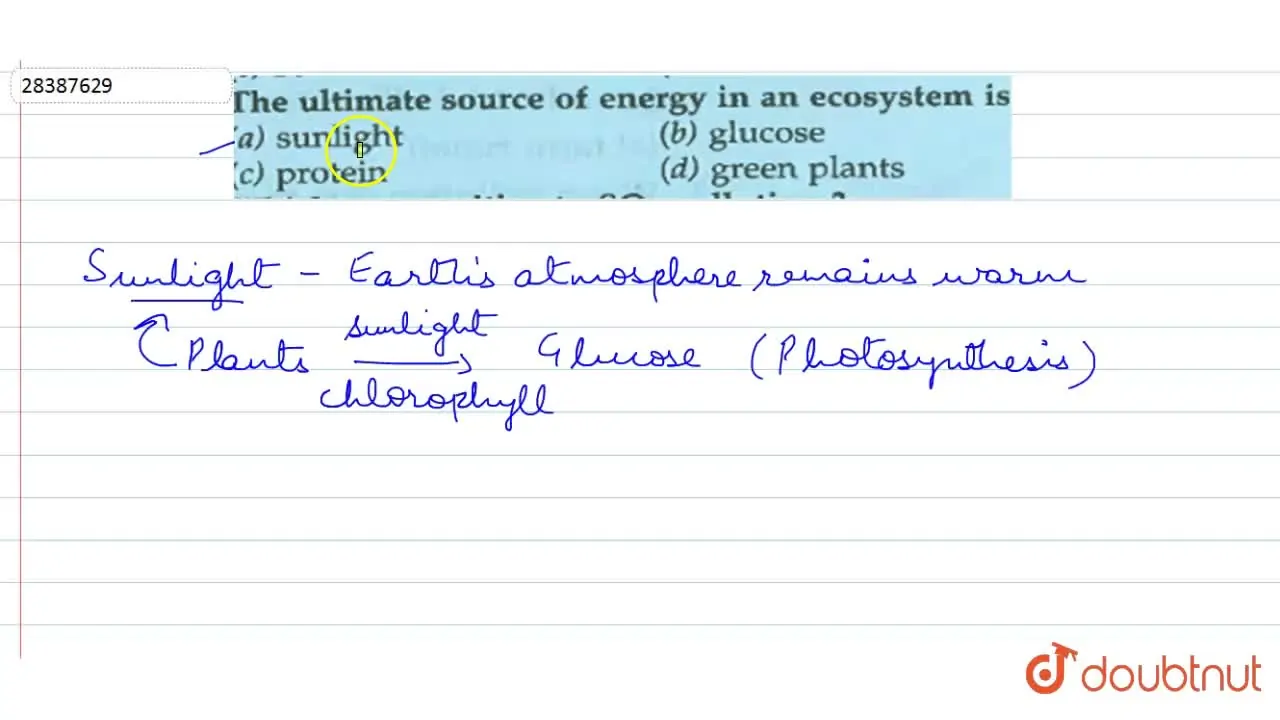 28387629
The ultimate source of energy in an ecosystem is
(a) sunlight (b) glucose
(c) protein (d) green plants
Sunlight - Earth's atmosphere remains warm
sunlight
Plants → Glucose (Photosynthesis)
chlorophyll
doubtnut